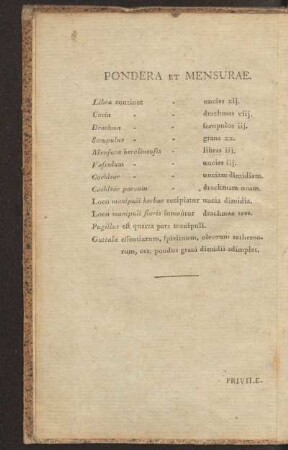 PONDERA ET MENSURAE.
Libra continet - uncias xij.
Uncia - - drachmas viij.
Drachma - - scrupulos iij.
Scrupulus - - grana xx.
Mensura berolinensis - libras iij.
Vasculum - - uncias iij.
Cochlear - - unciam dimidiam.
Cochlear parvum - drachmam unam.
Loco manipuli herbae recipiatur uncia dimidia.
Loco manipuli floris sumantur drachmae tres.
Pugillus est quarta pars manipuli.
Guttula essentiarum, spirituum, oleorum aethereo-
rum, etc. pondus grani dimidii adimplet.
PRIVILE-